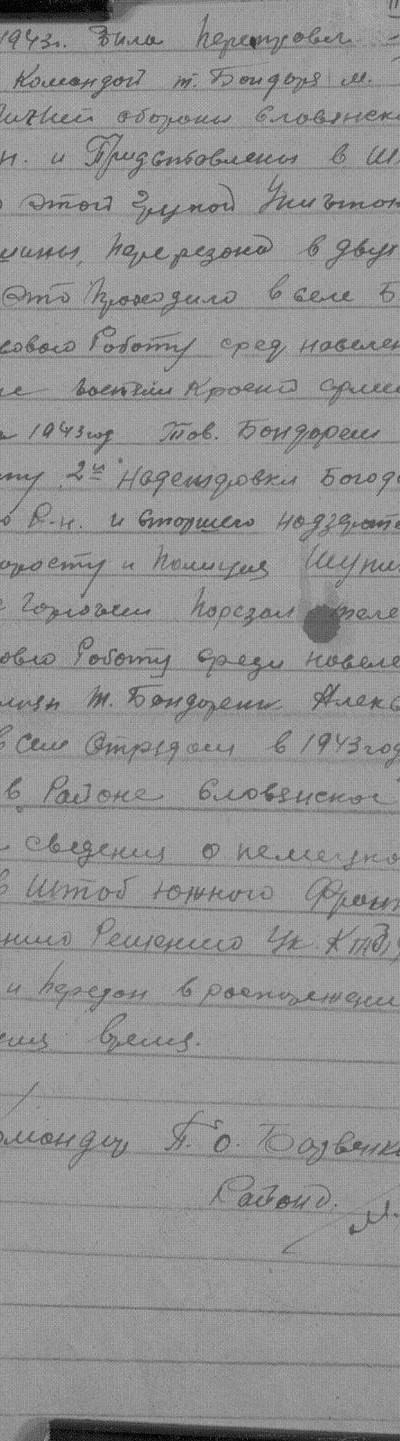 1943г. Была переправл
Командой т. Бондаря м.
Линией обороны Словянско
н. и Придьставлены в Ш
этой групой Уничтож
шины, перерезоно в двух
Это проходило в селе Б
сового Работу сред населен
1943год Тов. Бондарем
ту 2й Надеждовки Богод
о Р-н. и старшего надзрате
старосту и полицая Шупи
порезал теле
ового Работу среди населе
т. Бондаренк Алекс
в сем Отрядом в 1943год
в Районе Словянског
сведения о немецко
в Штаб южного Фронт
Решению Цк. КПбУ
и передан в роспоряжени
время.
омандир П. О. Базвенко
Района.
М.